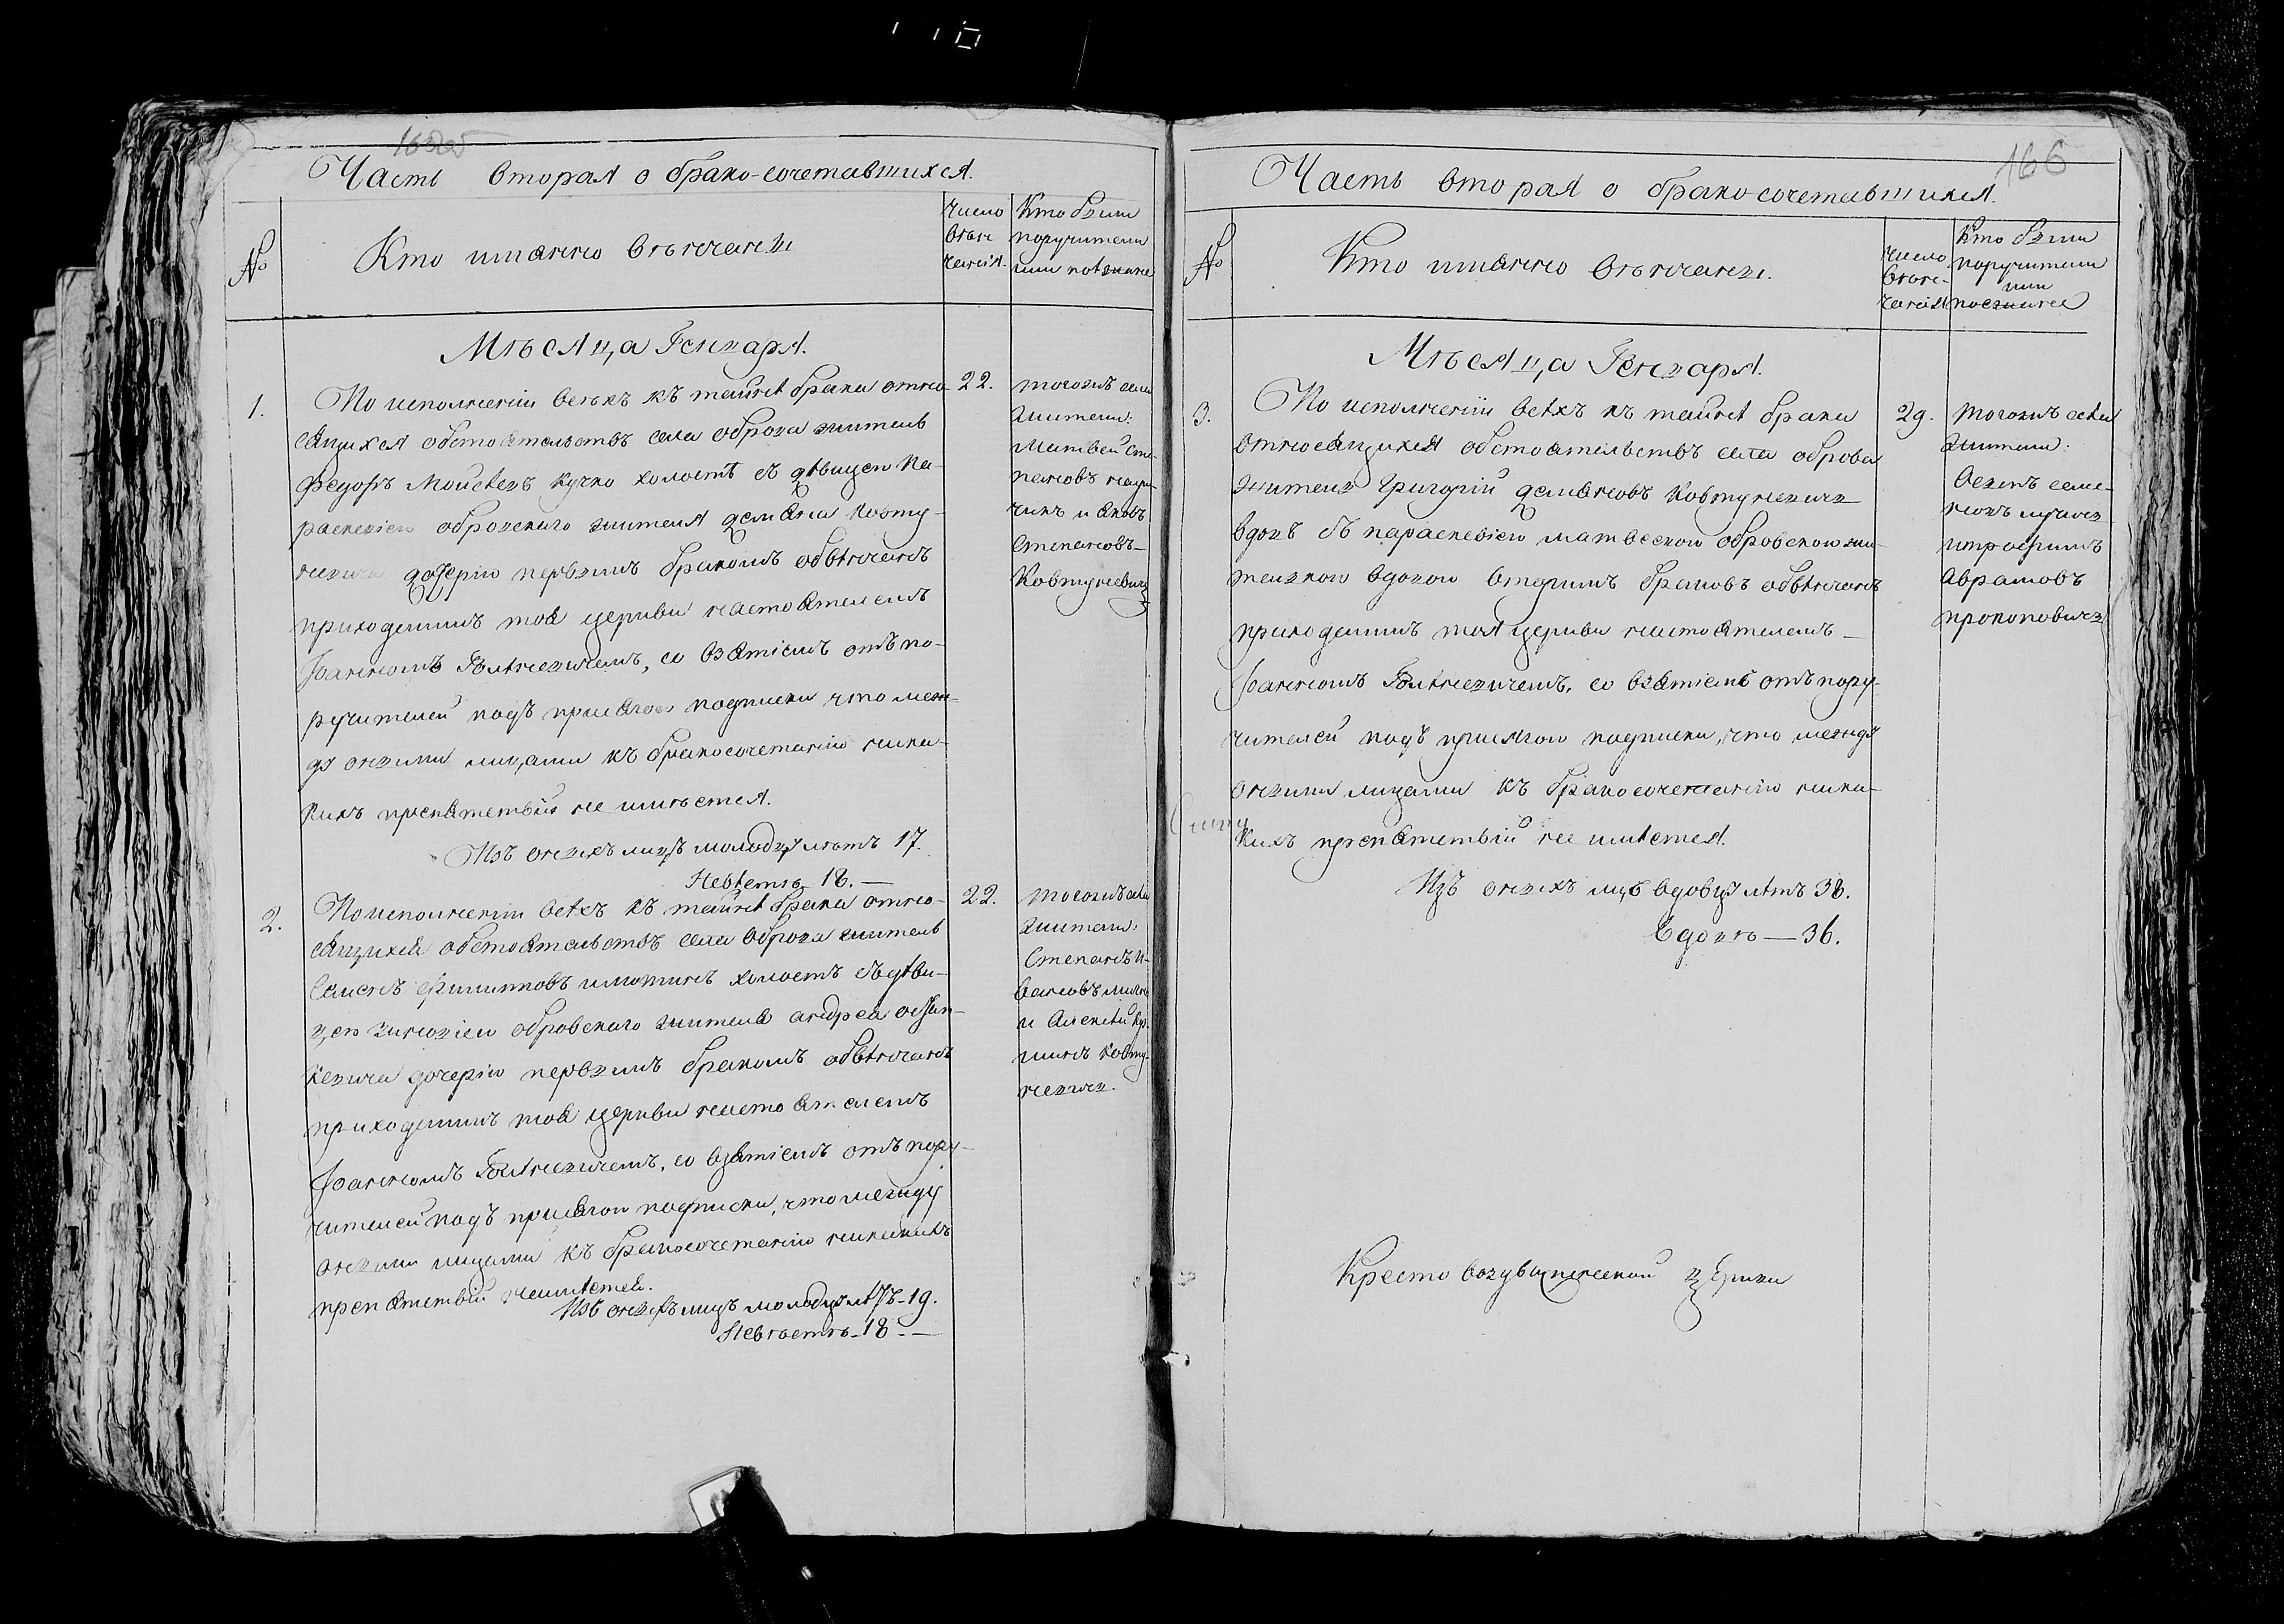 165
Часть вторая о брако-сочетавшихся.
№
Кто именно вѣнчаны
Число вѣнчанія.
Кто были поручители или поѣзжане
Мѣсяца Генваря.
1.
По исполненіи всѣхъ къ тайнѣ брака отно-
сящихся обстоятельствъ села оброва житель
Федоръ Моисѣевъ Кучко холостъ съ дѣвицею Па-
раскевіею обровскаго жителя демяна Ковту-
невича дочерію первымъ бракомъ обвѣнчанъ
приходскимъ тоя церкви настоятелемъ
Іоанномъ , со взятіемъ отъ по-
ручителей подъ присягою подписки что меж-
ду оными лицами къ бракосочетанію ника-
кихъ препятствій не имѣется.
Изъ оныхъ лицъ молодцу лѣтъ 17.
Невѣстѣ 18. —
22.
тогожъ села
жители:
Матвей Сте-
пановъ
и Яковъ
Степановъ
Ковтуневичъ
2.
По исполненіи всѣхъ къ тайнѣ брака отно-
сящихся обстоятельствъ села Оброва житель
Семенъ Филиповъ холостъ съ дѣви-
цею обровскаго жителя андрея
дочерію первымъ бракомъ обвѣнчанъ
приходскимъ тоя церкви настоятелемъ
Іоанномъ , со взятіемъ отъ пору-
чителей подъ присягою подписки, что между
оными лицами къ бракосочетанію никакихъ
препятствій неимѣется.
Изъ оныхъ лицъ молодцу лѣтъ-19.
Невѣстѣ-18.—
22.
тогожъ села
жители:
Степанъ И-
вановъ
и Алексѣй
Ковту-
невичъ.
166
Часть вторая о брако-сочетавшихся.
№
Кто именно вѣнчаны.
Число вѣнчанія
Кто были поручители или поезжане
Мѣсяца Генваря.
3.
По исполненіи всѣхъ къ тайнѣ брака
относящихся обстоятельствъ села оброва
житель Григорій демяновъ Ковтуневичъ
вдовъ съ параскевіею матвеевою обровскою жи-
телькою вдовою вторымъ бракомъ обвѣнчанъ
приходскимъ тоя церкви настоятелемъ —
Іоанномъ , со взятіемъ отъ пору-
чителей подъ присягою подписки, что между
оными лицами къ бракосочетанію ника-
кихъ препятствій не имѣется.
Изъ оныхъ лицъ вдовцу лѣтъ 38.
Вдовѣ — 36.
29.
Тогожъ села
жители:
Осипъ семе-
новъ
Авраамовъ
прокоповичъ
Кресто воздвиженской церкви